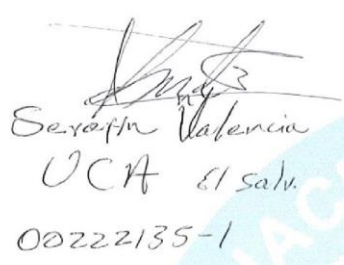 Serafín Valencia
UCA El Salv.
00222135-1